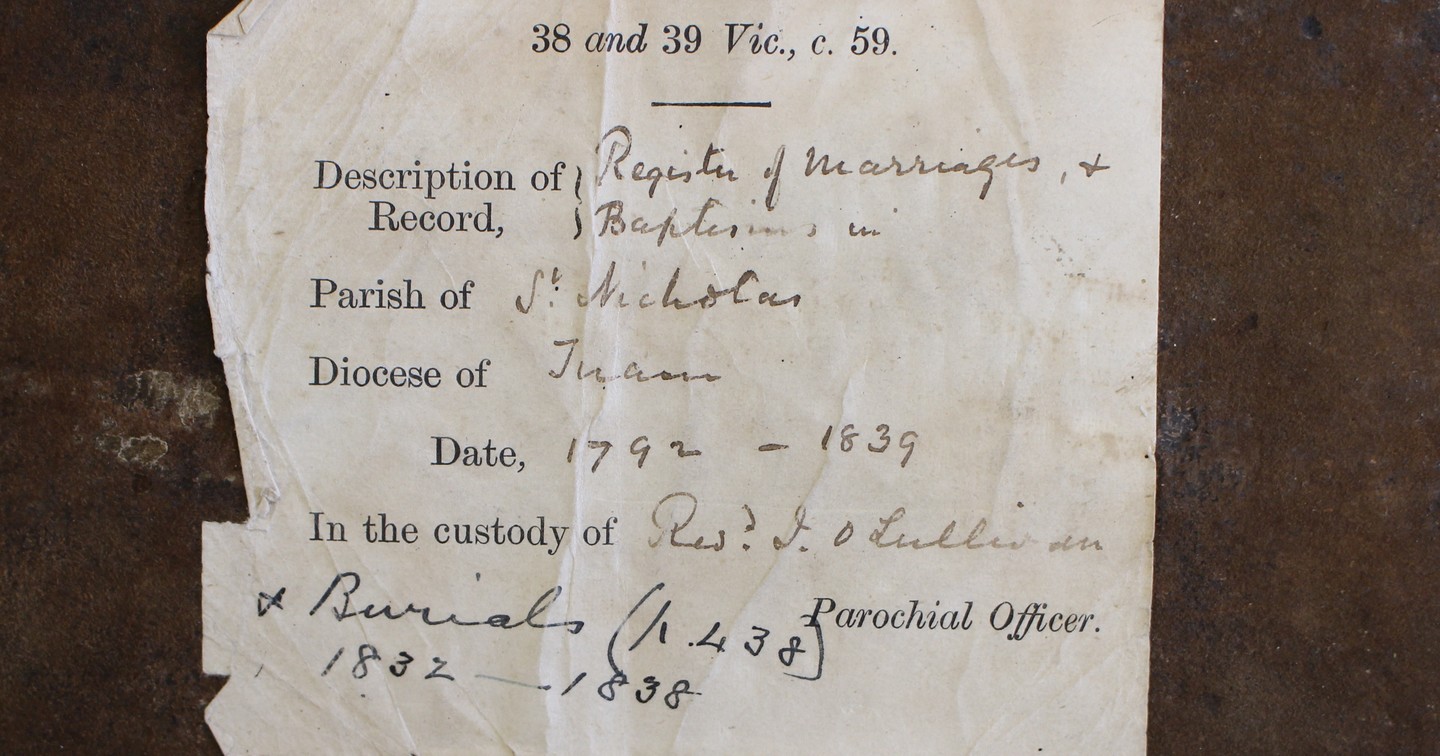 38 and 39 Vic., c. 59.
Description of } Register of Marriages, &
Record, } Baptisms in
Parish of St. Nicholas
Diocese of Tuam
Date, 1792 - 1839
In the custody of Revd. J. O Sullivan
Parochial Officer.
& Burials (p. 438)
1832 — 1838